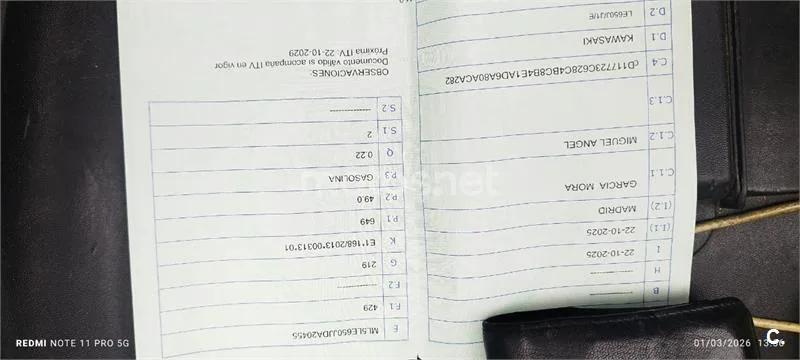 B ------------
H ------------
I 22-10-2025
(I.1) 22-10-2025
(I.2) MADRID
C.1.1 GARCIA MORA
C.1.2 MIGUEL ANGEL
C.1.3
C.4 cD117723C628C4BC8B4E1AD6A80ACA282
D.1 KAWASAKI
D.2 LE650J/J1/E
E ML5LE650JJDA20455
F.1 429
F.2 ------------
G 219
K E1*168/2013*00313*01
P.1 649
P.2 49.0
P.3 GASOLINA
Q 0.22
S.1 2
S.2 ------------
OBSERVACIONES:
Documento válido si acompaña ITV en vigor
Próxima ITV: 22-10-2029
motos.net
REDMI NOTE 11 PRO 5G
01/03/2026
C